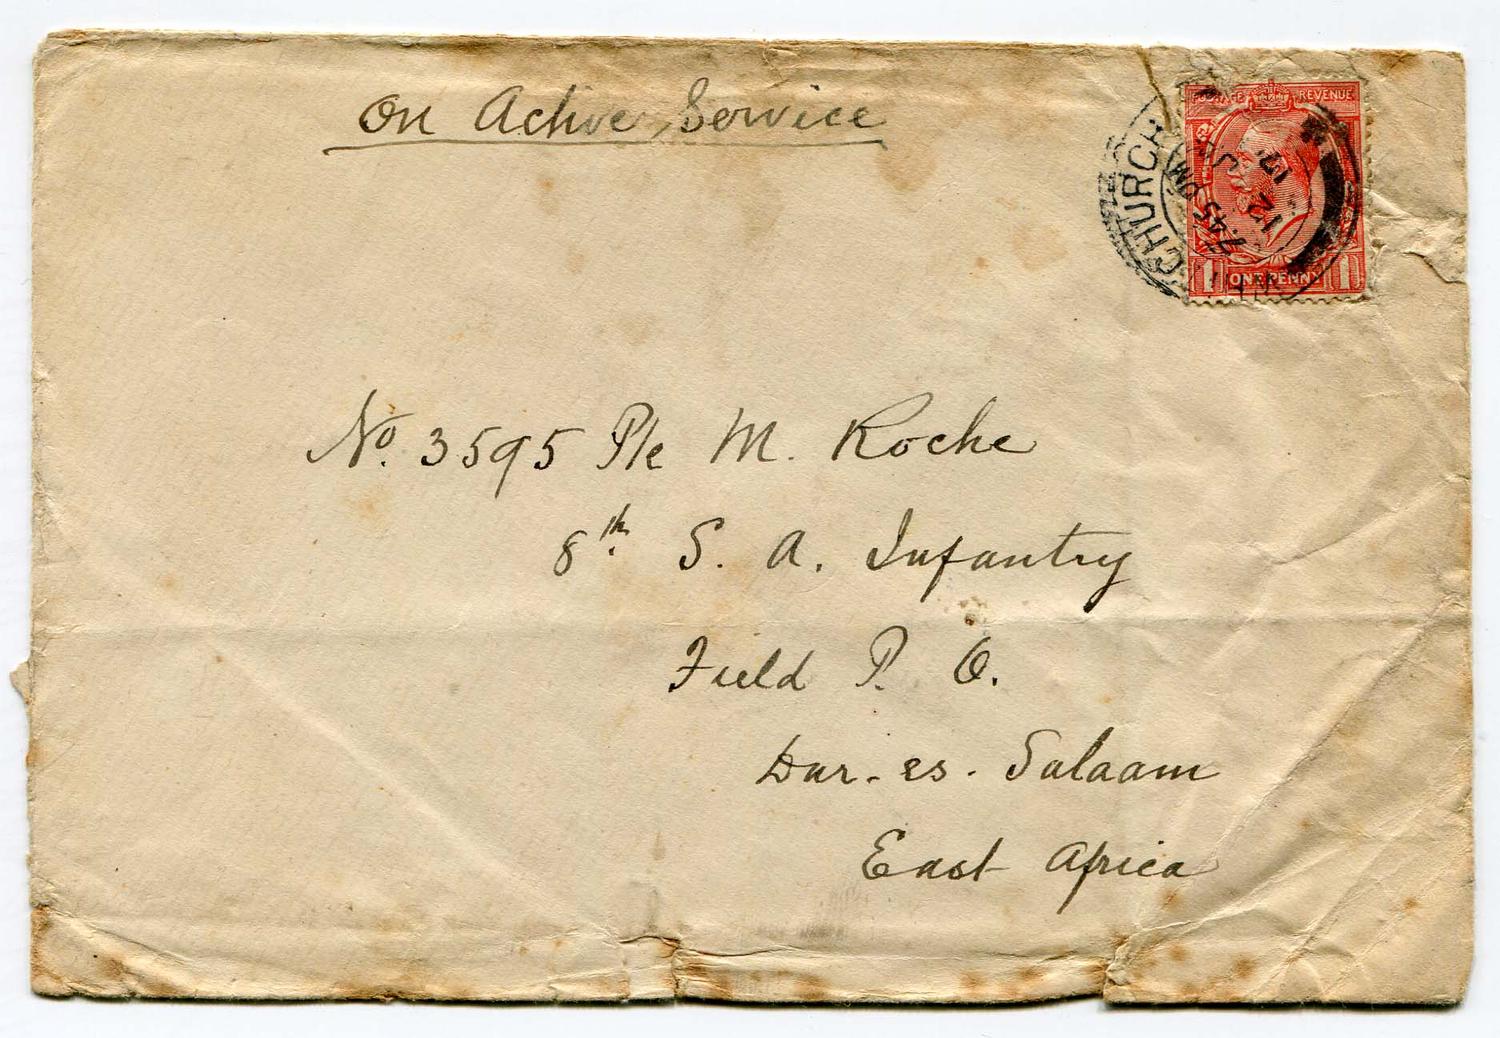 On Active Service
POSTAGE REVENUE
CHURCH
7.45 PM
JA
12
17
1 ONE PENNY 1
No. 3595 Pte M. Roche
8th. S. A. Infantry
Field P. O.
Dar-es-Salaam
East Africa